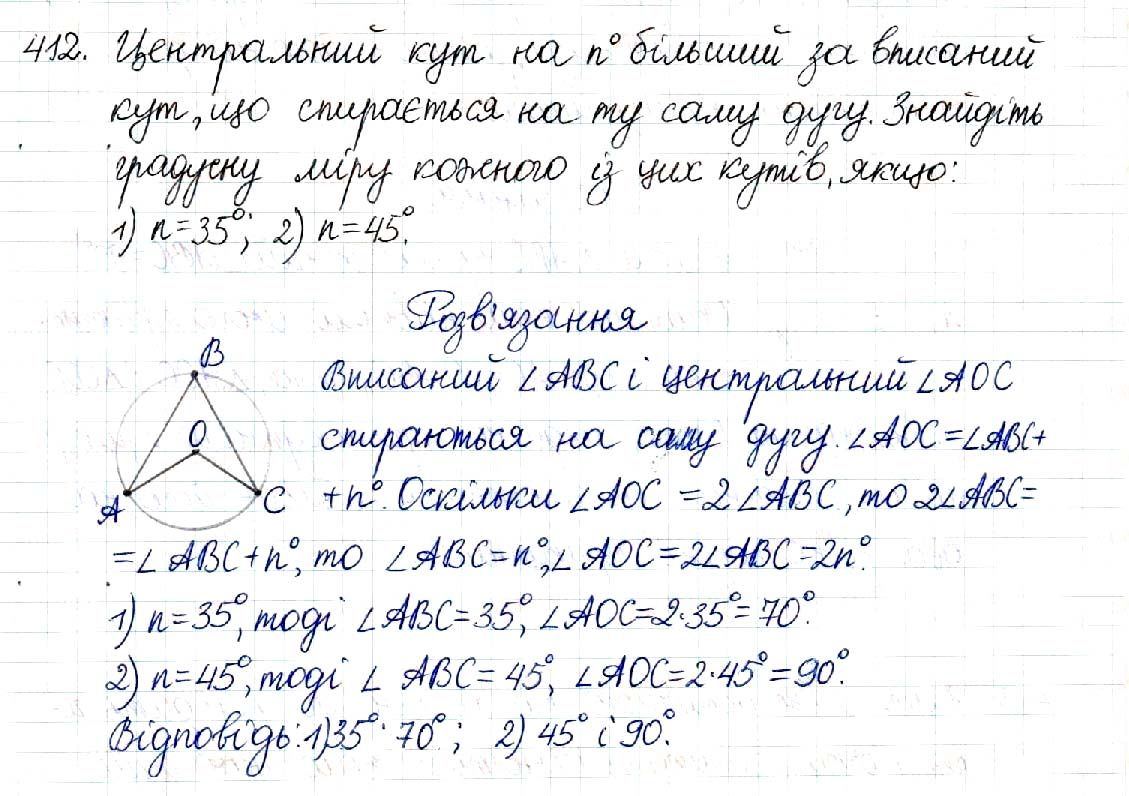 412. Центральний кут на n° більший за вписаний
кут, що спирається на ту саму дугу. Знайдіть
градусну міру кожного із цих кутів, якщо:
1) n=35°; 2) n=45°.
Розв'язання
B
O
A
C
Вписаний ∠ABC і центральний ∠AOC
спираються на саму дугу. ∠AOC=∠ABC+
+n°. Оскільки ∠AOC =2∠ABC, то 2∠ABC=
=∠ABC+n°, то ∠ABC=n°, ∠AOC=2∠ABC=2n°.
1) n=35°, тоді ∠ABC=35°, ∠AOC=2·35°=70°.
2) n=45°, тоді ∠ ABC= 45°, ∠AOC=2·45°=90°.
Відповідь: 1)35° 70°; 2) 45° і 90°.